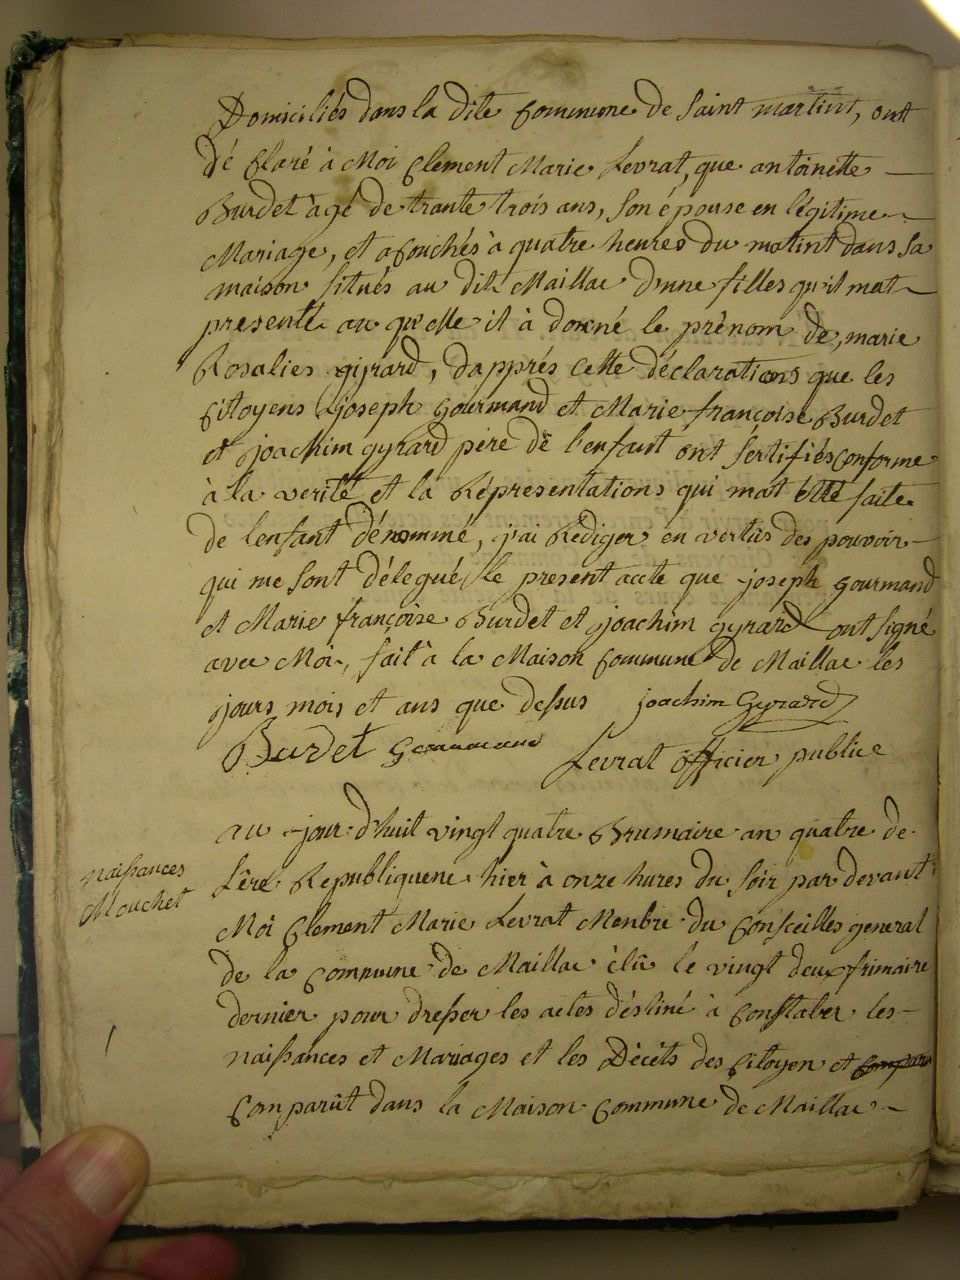 Domiciliés dans la dite Commune de Saint martint, ont
dé Claré à Moi Clement Marie Levrat, que antoinette
Burdet agé de trante trois ans, Son épouse en légitime
Mariage, et acouchés à quatre heures du matint dans Sa
maison Situés au dit Maillac dunne filles qu'il mat
presenté au qu'elle il à donné le prènom de, marie
Rosalies gyrard, dapprés Cette déclarations que les
Citoyens joseph gourmand et Marie françoise Burdet
et joachim gyrard père de l'enfant ont Sertifiés Conforme
à la verité et la Répresentations qui mat étté faite
de lenfant dénommé, j'ai Rédiger en vertus des pouvoir
qui me Sont délegué, le present acte que joseph gourmand
et Marie françoise Burdet et joachim gyrard ont Signé
avec Moi, fait à la Maison Commune de Maillac les
jours mois et ans que dessus joachim Gyrard
Burdet Gourmand Levrat officier publice
au jour d'huit vingt quatre Brumaire an quatre de
naissances
Mouchet
L'ère Republiquene hier à onze hures du Soir par devant
Moi Clement Marie Levrat Menbre du Conseilles general
de la Commune de Maillac élû le vingt deux frimaire
dernier pour dresser les actes déstiné à Constater les
naissances et Mariages et les Décéts des Citoyen et
Comparût dans la Maison Commune de Maillac